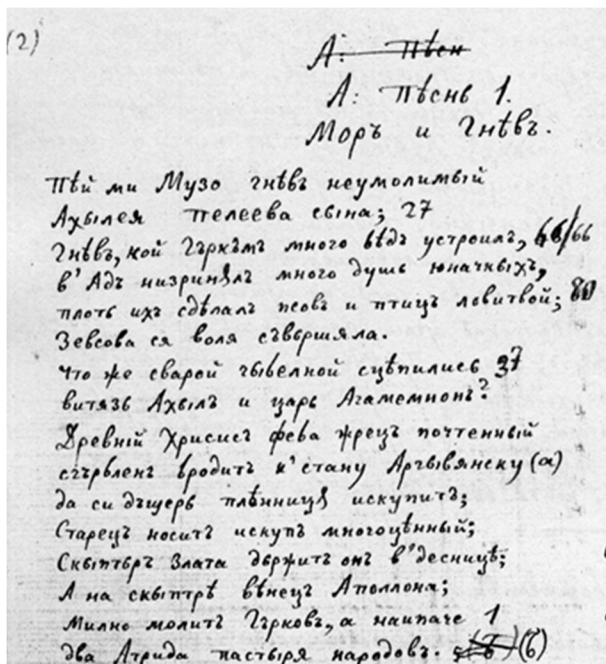 (2)
А: Пѣсн
А: Пѣснь 1.
Моръ и Гнѣвъ.
Пѣй ми Музо гнѣвъ неумолимый
Ахылея Пелеева сына; 27
Гнѣвъ, кой Гъркѫмъ много бѣдъ устроилъ, 66
в' Адъ низринѫлъ много душь юначныхъ,
плоть ихъ сдѣлалъ псовъ и птицъ ловитвой; 80
Зевсова ся воля съвършяла.
Что же сварой гыбелной сцѣпились 37
витязь Ахылъ и царь Агамемнонъ?
Древній Хрисисъ Феба жрецъ почтенный
сгърбленъ бродитъ к' стану Аргывянску (а)
да си дъщерь плѣнницѫ искупитъ;
Старецъ носитъ искупъ многоцѣнный;
Скыптъръ Злата държитъ онъ в' десницѣ;
А на скыптрѣ вѣнецъ Аполлона;
Милно молитъ Гърковъ, а наипаче 1
два Атрида пастыря народовъ. (б)